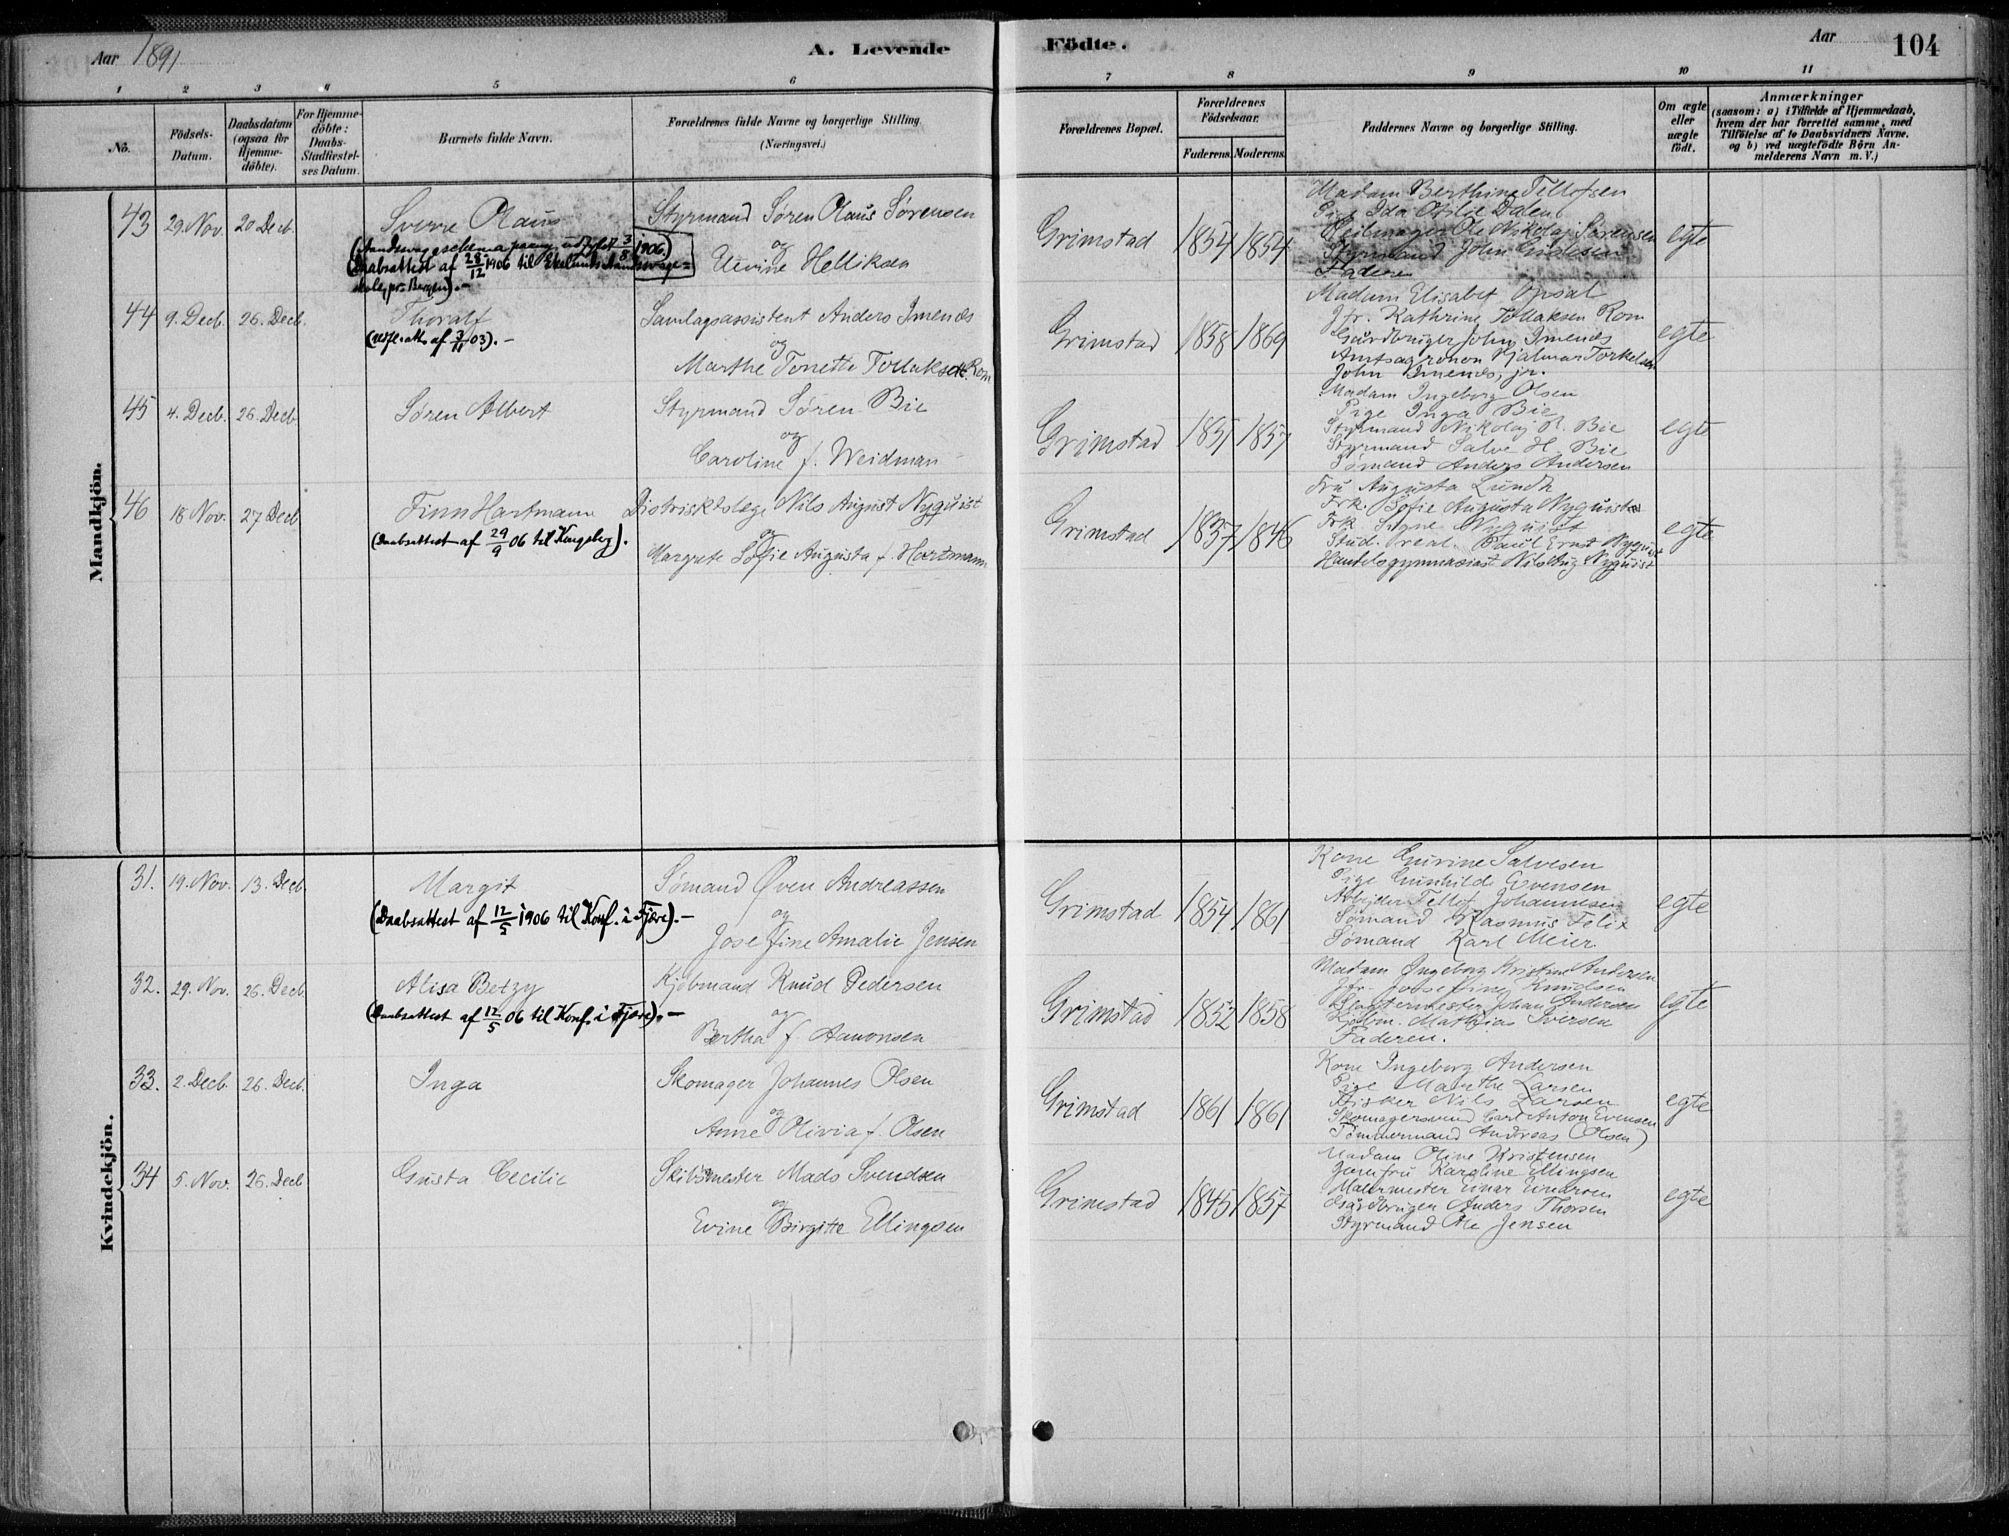 Aar 1891
A. Levende
Födte.
Aar
104
1 2 3 4 5 6
7 8 9 10 11
No.
Födsels-Datum.
Daabsdatum (ogsaa för Hjemme-döbte).
For Hjemme-döbte: Daabs-Stadfæstel-ses Datum.
Barnets fulde Navn.
Forældrenes fulde Navne og borgerlige Stilling.
(Næringsvei.)
Forældrenes Bopæl.
Forældrenes Födselsaar.
Faderens. Moderens.
Faddernes Navne og borgerlige Stilling.
Om ægte eller uægte födt.
Anmærkninger
(saasom: a) i Tilfælde af Hjemmedaab,
hvem der har forrettet samme, med
Tilföielse af to Daabsvidners Navne.
og b) ved uægtefödte Börn An-
melderens Navn m. V.)
Mandkjön.
43 29. Nov. 20 Decb. Sverre Olaus
(Aandssvageschema paany udfyldt 3/8 1906)
(Daabsattest af 28/12 1906 til Aandssvage=
skole pr. Bergen).-
Styrmand Søren Olaus Sørensen
og
Helliksen
Grimstad 1854 1854
Madam Berthine Tellofsen
Pige Ida Otilie Dalen
Seilmager Ole Nikolaj Sørensen
Styrmand John
Faderen
egte
44 9. Decb. 26. Decb. Thoralf
(Udfl. att. af 3/11 03).-
Samlagsassistent Anders Imenes
og
Marthe Tonette Tollaksen Rom
Grimstad 1858 1869
Madam Elisabet Opsal
Jfr. Kathrine Tollaksen Rom
Gaardbruger John Imenes
Amtsagronon Hjalmar Torkelsen
John Imenes, jr.
egte
45 4. Decb. 26. Decb. Søren Albert
Styrmand Søren Bie
og
Caroline f. Weidman
Grimstad 1851 1857
Madam Ingeborg Olsen
Pige Inga Bie
Styrmand Nikolaj H. Bie
Styrmand Salve H. Bie
Sømand Anders Andersen
egte
46 18 Nov. 27 Decb Finn Hartmann
(Daabsattest af 29/9 06 til Kongsberg).
Distriktslæge Nils August Nyquist
og
Margrete Sofie Augusta f. Hartmann
Grimstad 1837 1846
Fru Augusta Lundh
Frk. Sofie Augusta Nyquist
Frk. Signe Nyquist
Stud. real. Paul Ernst Nyquist
Handelsgymnasiast Nils Aug. Nyquist
egte
Kvindekjön.
31. 19. Nov. 13. Decb. Margit
(Daabsattest af 12/5 1906 til Konf. i Fjære).-
Sømand Øven Andreassen
og
Josefine Amalie Jensen
Grimstad 1854 1861
Kone Gurine Salvesen
Pige Gunhilde Evensen
Arbeider Tellof Johannesen
Sømand Rasmus Felix
Sømand Karl Meier
egte
32. 29. Nov. 26. Decb. Alisa Betzy
(Daabsattest af 12/5 06 til Konf. i Fjære).-
Kjøbmand Knud Pedersen
og
Bertha f. Amonsen
Grimstad 1852 1858
Madam Ingeborg Kristine Andersen
Jfr. Josefine Knudsen
Johan Andersen
Kjøbm. Mathias Iversen
Faderen.
egte
33. 2. Decb. 26. Decb. Inga
Skomager Johannes Olsen
og
Anne Olivia f. Olsen
Grimstad 1861 1861
Kone Ingeborg Andersen
Pige Marthe Larsen
Fisker Nils Larsen
Skomagersvend Carl Anton Evensen
Tømmermand Andreas (Olsen)
egte
34 5. Nov. 26. Decb Gusta Cecilie
Skibsmester Mads Svendsen
og
Evine Birgitte Ellingsen
Grimstad 1845 1857
Madam Oline Kristensen
Jomfru Karoline Ellingsen
Malermester Einar Einarsen
Gaardbruger Anders Thorsen
Styrmand Ole Jensen
egte